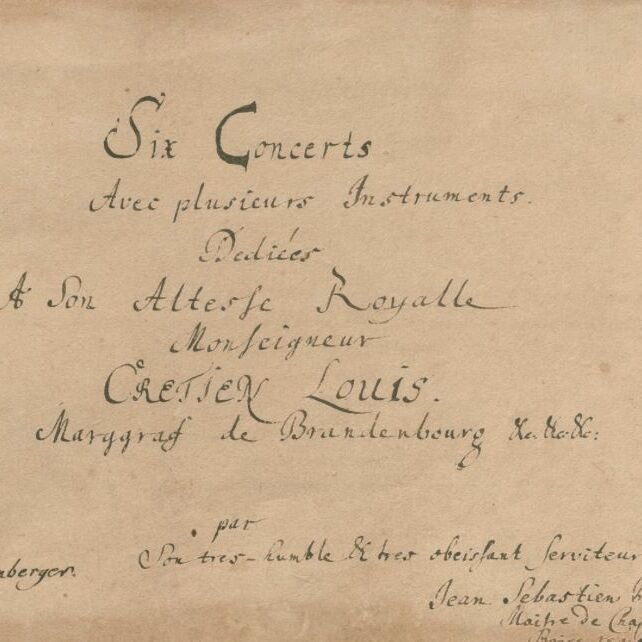 Six Concerts
Avec plusieurs Instruments.
Dediées
A Son Altesse Royalle
Monseigneur
CRETIEN LOUIS.
Marggraf de Brandenbourg &c. &c. &c:
par
Son tres-humble & tres obeissant serviteur
nberger.
Jean Sebastien
Maitre de Cha